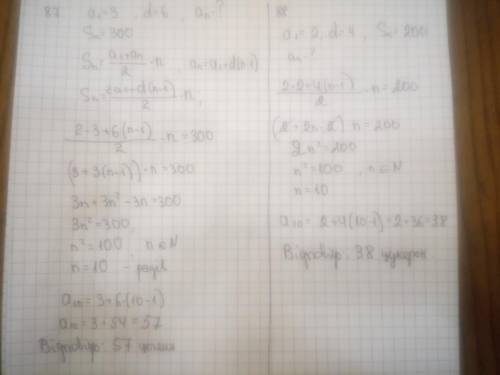 87 a₁=3, d=6, aₙ-?
Sₙ=300
Sₙ=(a₁+aₙ)/2 · n, aₙ=a₁+d(n-1)
Sₙ=(2a₁+d(n-1))/2 · n,
(2·3+6(n-1))/2 · n=300
(3+3(n-1))·n=300
3n+3n²-3n=300
3n²=300
n²=100 n∈N
n=10 - рядів
a₁₀=3+6·(10-1)
a₁₀=3+54=57
Відповідь: 57
88
a₁=2, d=4, Sₙ=200
aₙ-?
(2·2+4(n-1))/2 · n=200
(2+2n-2) n=200
2n²=200
n²=100, n∈N
n=10
a₁₀=2+4(10-1)=2+36=38
Відповідь: 38 цукерок